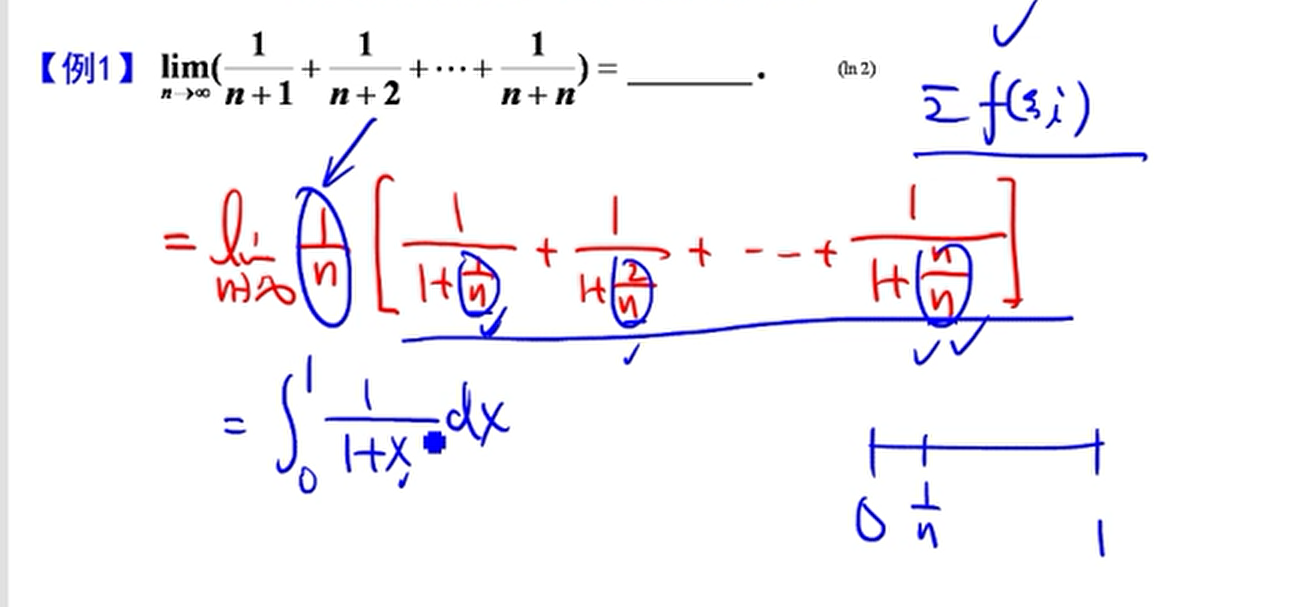 【例1】 lim(1/(n+1) + 1/(n+2) + ⋯ + 1/(n+n)) = ______. (ln 2)
n→∞
Σ f(ξi)
= lim 1/n [ 1/(1+1/n) + 1/(1+2/n) + --- + 1/(1+n/n) ]
n→∞
= ∫₀¹ 1/(1+x) dx
0 1/n 1